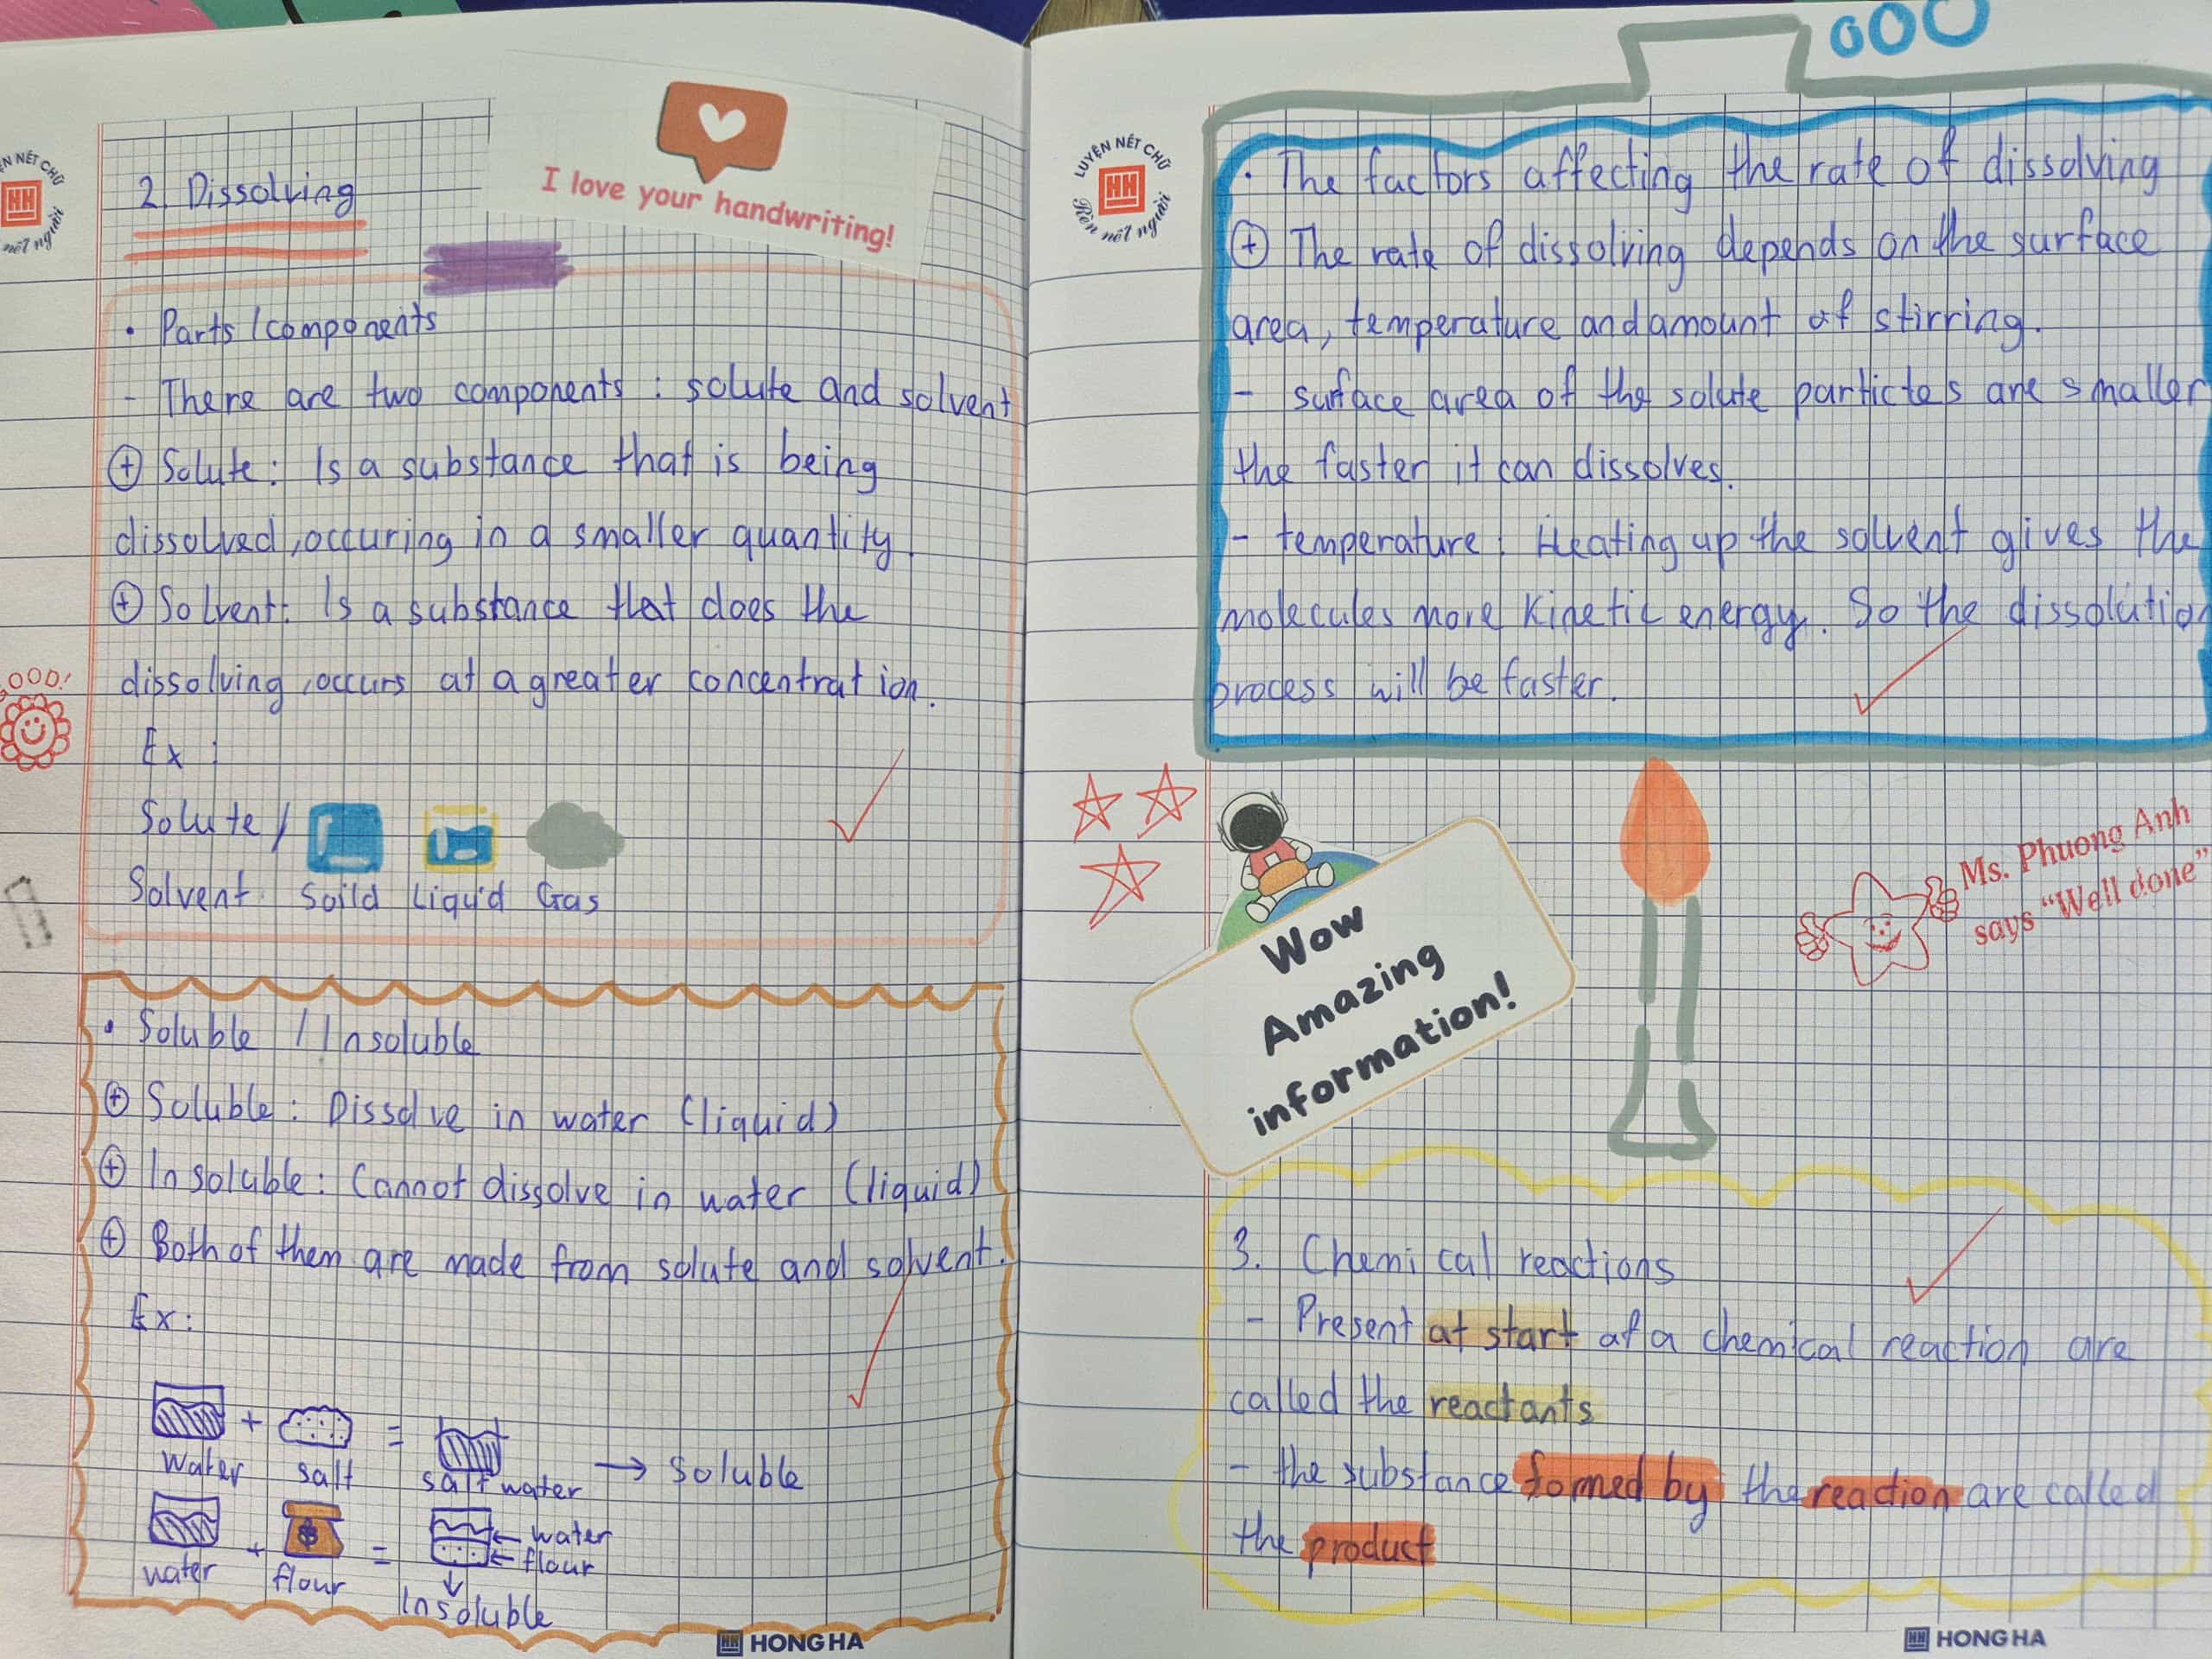 2. Dissolving
I love your handwriting!
• Parts / components
- There are two components : solute and solvent
+ Solute : Is a substance that is being
dissolved, occuring in a smaller quantity.
+ Solvent : Is a substance that does the
dissolving, occurs at a greater concentration.
Ex :
Solute /
Solvent Soild Liquid Gas
• Soluble / Insoluble
+ Soluble : Dissolve in water (liquid)
+ Insoluble : Cannot dissolve in water (liquid)
+ Both of them are made from solute and solvent.
Ex :
+ =
water salt salt water → soluble
+ = ← water
← flour
water flour
↓
Insoluble
HH HONG HA
LUYỆN NÉT CHỮ
HH
Rèn nết người
• The factors affecting the rate of dissolving
+ The rate of dissolving depends on the surface
area, temperature and amount of stirring.
- surface area of the solute particles are smaller
the faster it can dissolves.
- temperature : Heating up the solvent gives the
molecules more kinetic energy. So the dissolution
process will be faster.
Wow
Amazing
information!
Ms. Phuong Anh
says "Well done"
3. Chemical reactions
- Present at start of a chemical reaction are
called the reactants
- the substance fomed by the reaction are called
the product
HH HONG HA